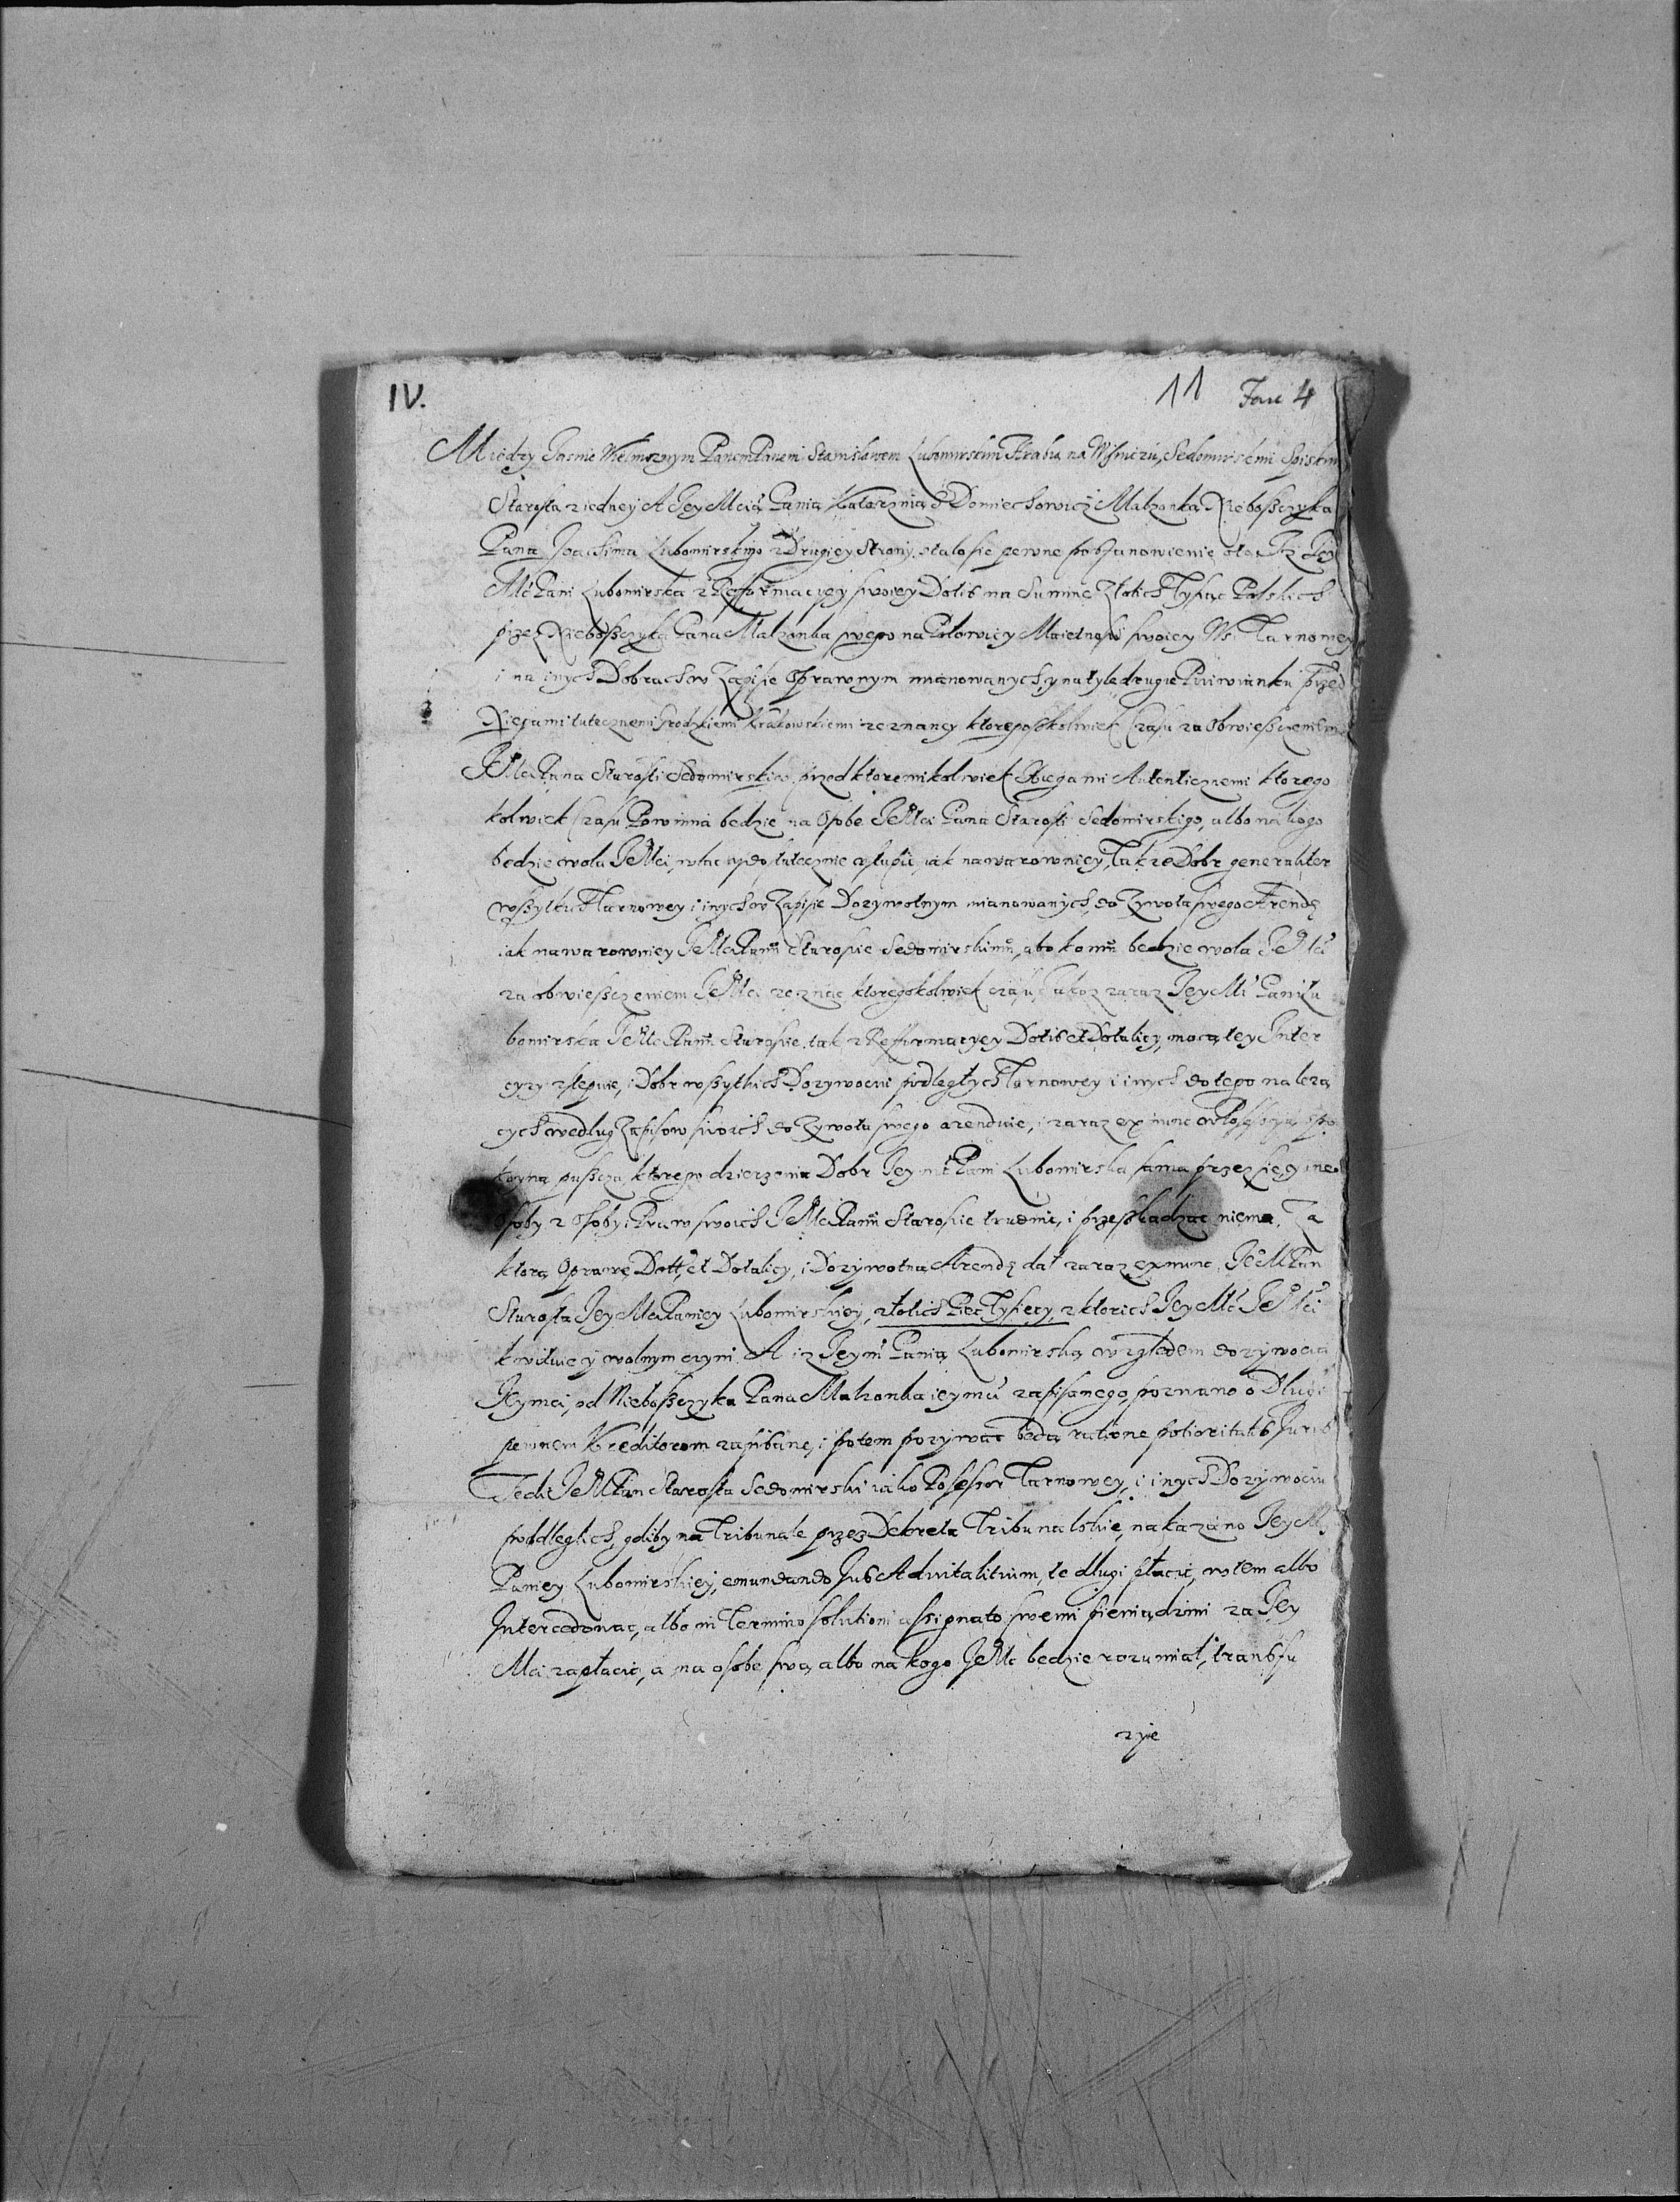 IV.
11 Fasc 4
Miedzy Jasnie Wielmoznym Panem Panem Stanisławem Lubomirskim Hrabia na Wisniczu, Sedomirskim Spiskim
Starosta z iedney A Jey Mcią Panią Katarzyną Małzonką Nieboszczyka
Pana Joachima Lubomirskigo z Drugiey Strony, stalo sie pewne postanowienie Isz Jey
Mc Pani Lubomirska z Refformacyey swoiey Dotis na Summę Złotich Tysiąc Polskich
przez Nieboszczyka Pana Malzonka swego na Polowicy Maietnosci swoiey Wsi Tarnowey
i na inych Dobrach w Zapisie Oprawnym mianowanych, y na tyle drugie Prziwianku przed
Xięgami tutecznemi Grodzkiemi Krakowskiemi zeznaney ktoregoszkolwiek Czasu za Obwieszczeniem
Je Mci Pana Starosti Sedomirskigo, przed ktoremikolwiek Xięgami Autenticznemi ktorego
kolwiek Czasu Powinna bedzie na Osobe Je Mci Pana Starosti Sedomirskigo, albo na kogo
bedzie wola Je Mci, wlać y do stutecznie wstąpic, iak nawarowniey, Takze Dobr generaliter
wszytkich Tarnowey i inych w Zapisie Dozywotnym mianowanych, do Zywota swego Arendę
iak nawarowniey Je Mci Panu Staroscie Sedomirskimu, abo komu bedzie wola Je Mci
za obwieszczeniem Je Mci zeznac ktoregokolwiek czasu, iakoz zaraz Jey Mc Pani Lu
bomirska Je Mci Panu Staroscie, tak z Refformacyey Dotis et Dotalicy, mocą tey Inter
cyzy zstępuie, i Dobr wszytkich Dozywociu podległych Tarnowey i inych do tego należą
cych według Zapisow swoich do Zywota swego arenduie, i zaraz ex nunc w Possessyą spo
koyną puszcza, ktorego dzierzenia Dobr Jey Mc Pani Lubomirska sama przez się, y ine
osoby z Osoby i Praw swoich Je Mci Panu Staroscie trudnic, i przeszkadzac niema. Za
ktorą Oprawę Dott, et Dotalicy, i Dozywotną Arendę dał zaraz ex nunc Je M Pan
Starosta Jey Mci Paniey Lubomirskiey, złotich Piec Tysięcy, z ktorich Jey Mc Je Mci
kwituie y wolnym czyni. A iz Jeymc Panią Lubomirską względem dozywocia
Jeymci, od Nieboszczyka Pana Malzonka ieymu zapisanego, pozwano o Dlugi
pewnem Kreditorom zapisane, i potem pozywac bedą ratione potioritatis Juris
Tedi Je M Pan Starosta Sedomirski iako Possessor Tarnowey, i inych Dozywociu
podleglich, gdiby na Tribunale przez Dekreta Tribunalskie, nakazano Jey Mc
Paniey Lubomirskiey, emundando Jus Advitalitium, te dlugi płacic, w tem albo
Intercedowac, albo in Termino solutioni assignato swemi pieniądzmi za Jey
Mci zapłacic, a na osobe swą albo na kogo Je Mc bedzie rozumiał, transfu
zyie